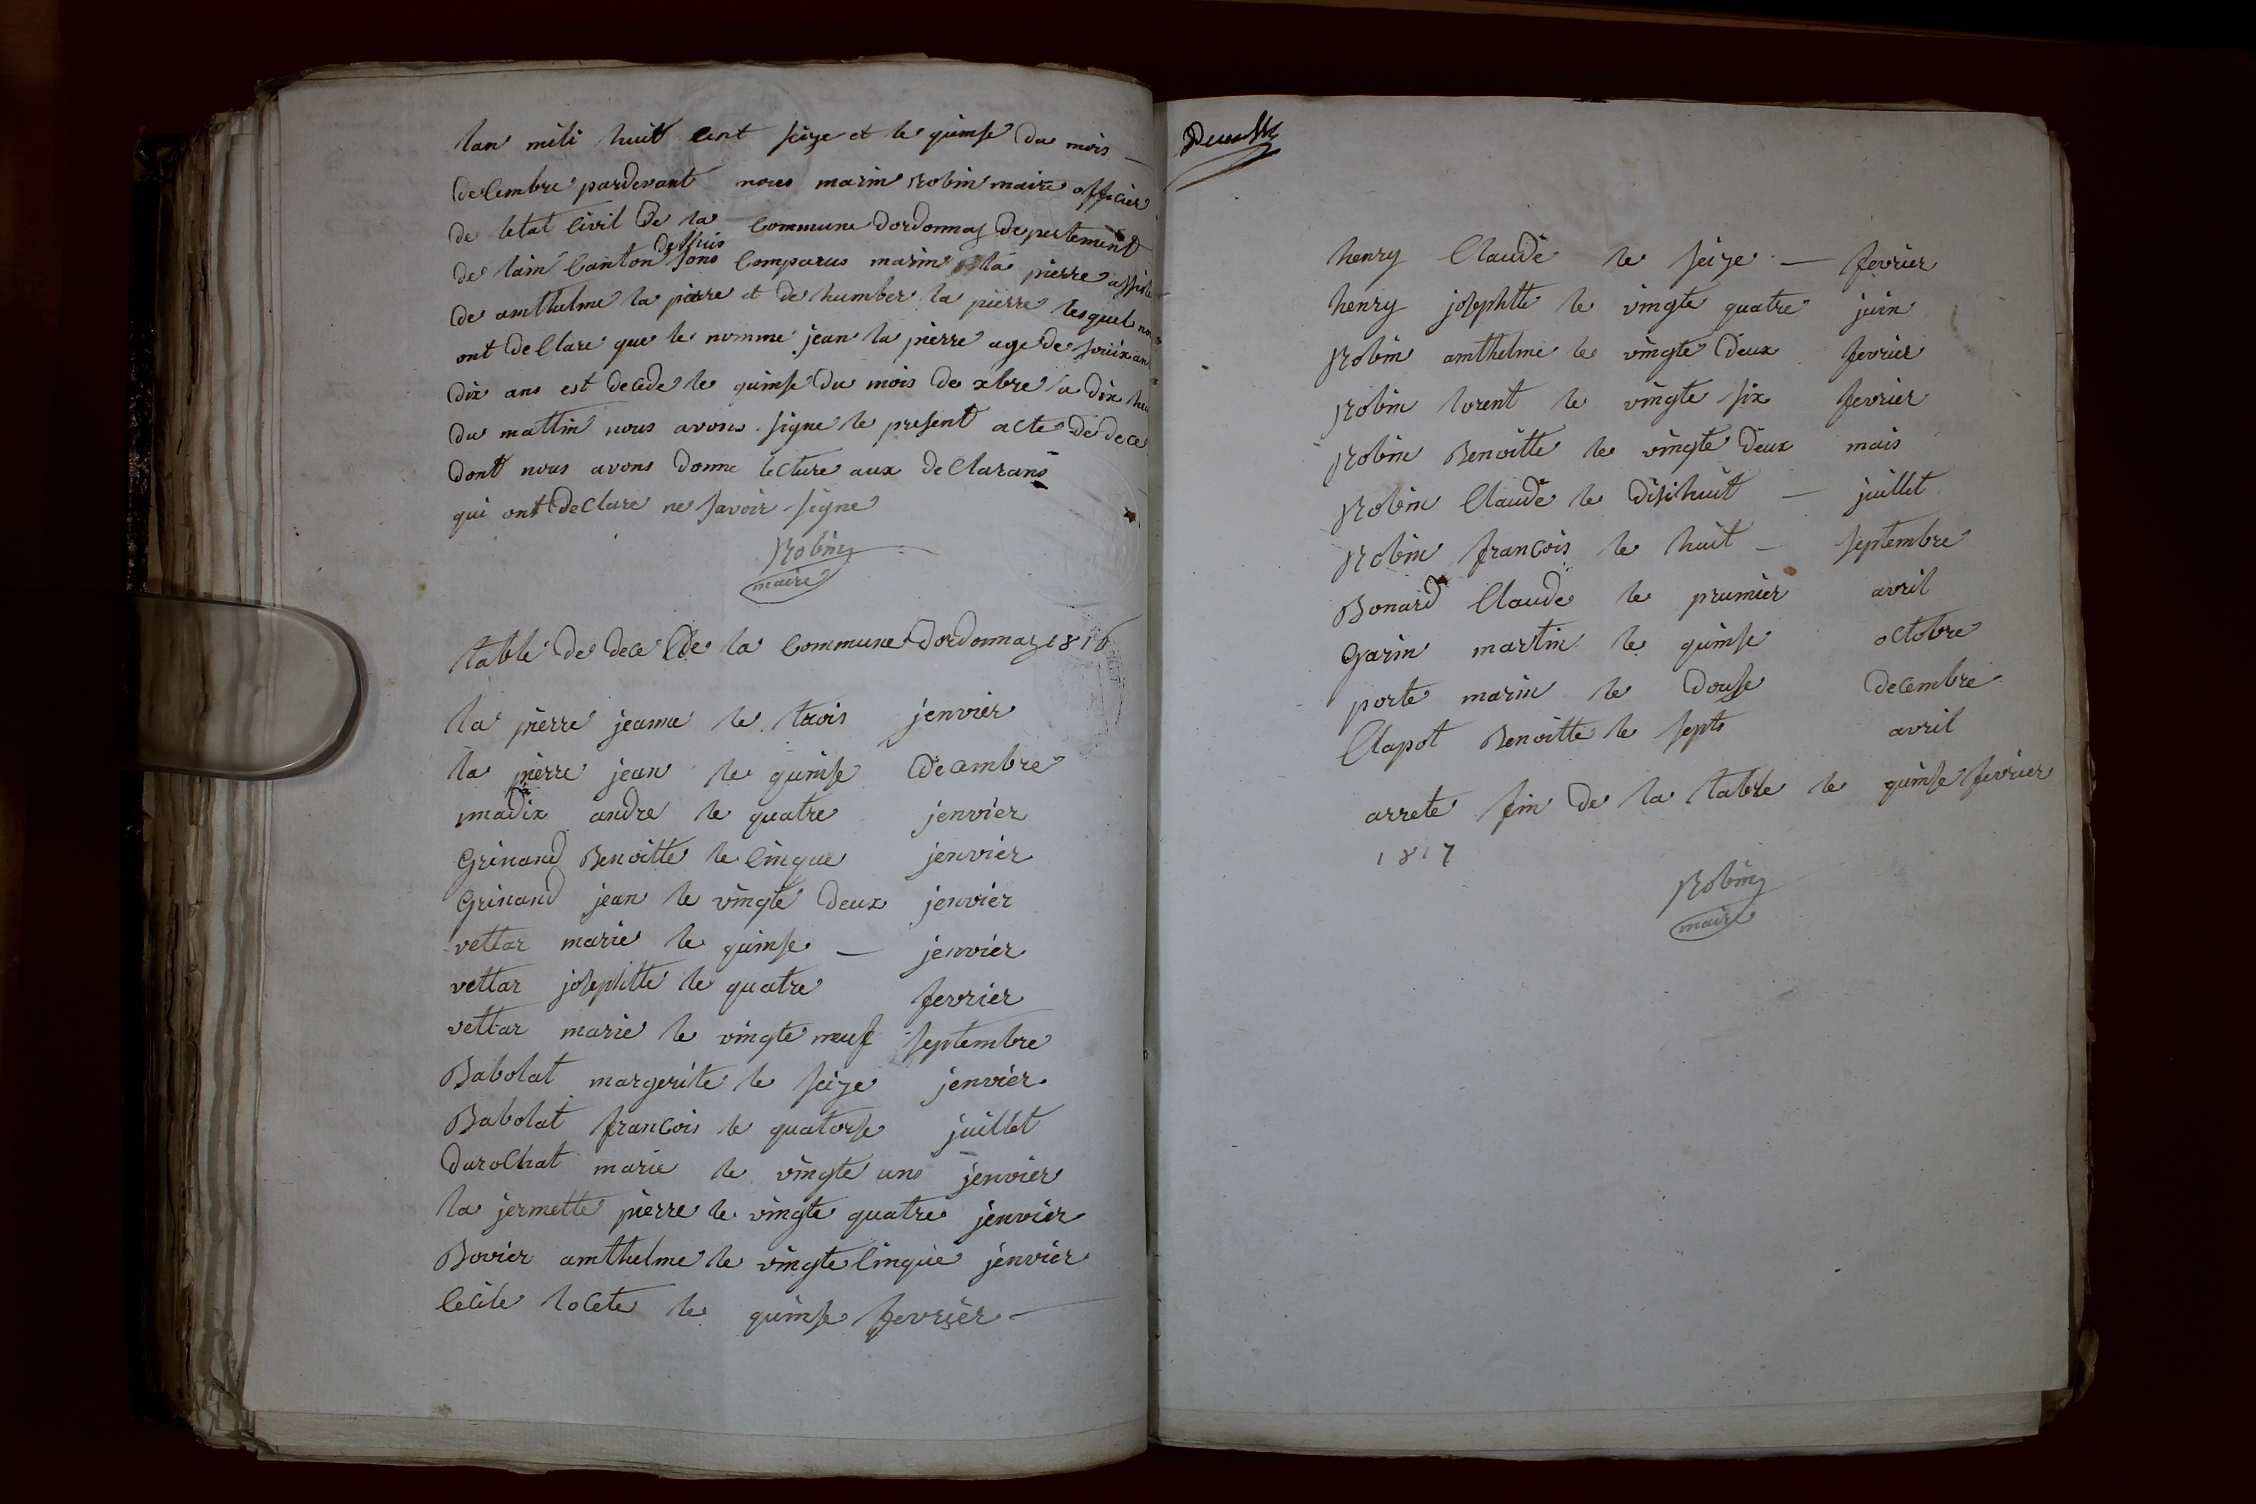 lan mili huit cent seize et le quinse du mois
decembre pardevant nous marin Robin maire officier
de letat civil de la commune dordonnaz depertement
de lain canton dessuis sons comparus marin la pierre assiste
de amthelme la pierre et de humber la pierre lesquel nou
ont declare que le nomme jean la pierre age de souixant
dix ans est decede le quinse du mois de xbre a dix heu
du mattin nous avons signe le present acte de dece
dont nous avons donne lecture aux declarans
qui ont declare ne savoir signe
Robin
maire
table de dece de la commune dordonnaz 1816
la pierre jeanne le trois jenvier
la pierre jean le quinse decembre
madix andre le quatre jenvier
Grinand Benoitte le cinque jenvier
Grinand jean le vingte deux jenvier
vettar marie le quinse — jenvier
vettar josephtte le quatre fevrier
vettar marie le vingte neuf septembre
Babolat margerite le seize jenvier
Babolat francois le quatorse juillet
durochat marie le vingte uns jenvier
la jermette pierre le vingte quatre jenvier
Bovier amthelme le vingte cinque jenvier
cecile locete le quinse fevrier —
henry claude le seize — fevrier
henry josephtte le vingte quatre juin
Robin amthelme le vingte deux fevrier
Robin lorent le vingte six fevrier
Robin Benoitte le vingte deux mais
Robin claude le disihuit — juillet
Robin francois le huit — septembre
Bonard claude le prumier avril
Garin martin le quinse octobre
porte marin le douse decembre
clapot Benoitte le septs avril
arrete fin de la table le quinse fevrier
1817
Robin
maire